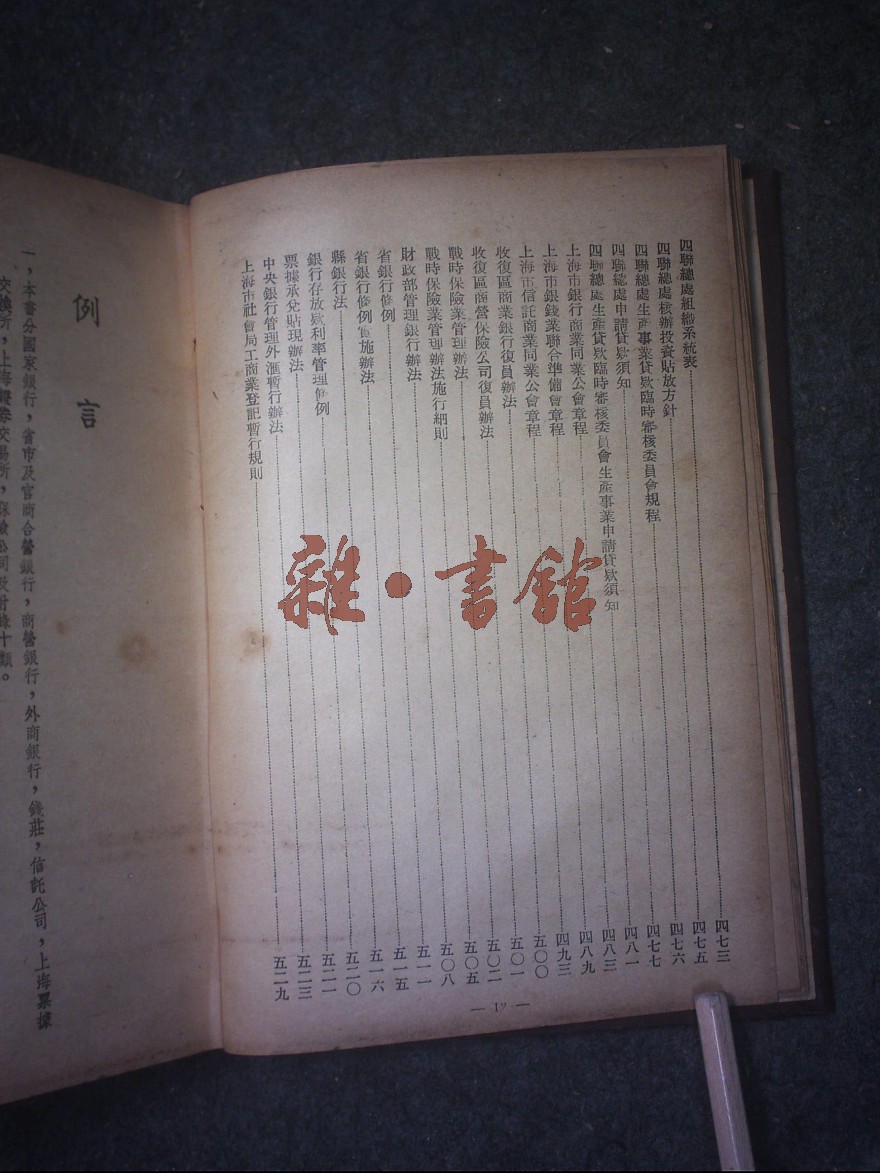 四聯總處組織系統表……四七三
四聯總處核辦投資貼放方針……四七五
四聯總處生產事業貸欵臨時審核委員會規程……四七六
四聯總處申請貸欵須知……四七七
四聯總處生產貸欵臨時審核委員會生產事業申請貸欵須知……四八一
上海市銀行商業同業公會章程……四八三
上海市銀錢業聯合準備會章程……四八九
上海市信託商業同業公會章程……四九三
收復區商業銀行復員辦法……五〇〇
收復區商營保險公司復員辦法……五〇一
戰時保險業管理辦法……五〇二
戰時保險業管理辦法施行細則……五〇五
財政部管理銀行辦法……五〇八
省銀行條例……五一一
省銀行條例實施辦法……五一五
縣銀行法……五一六
銀行存放欵利率管理條例……五二〇
票據承兌貼現辦法……五二一
中央銀行管理外滙暫行辦法……五二三
上海市社會局工商業登記暫行規則……五二九
例言
一，本書分國家銀行，省市及官商合營銀行，商營銀行，外商銀行，錢莊，信託公司，上海票據
交換所，上海證券交易所，保險公司及附錄十類。
雜·書館